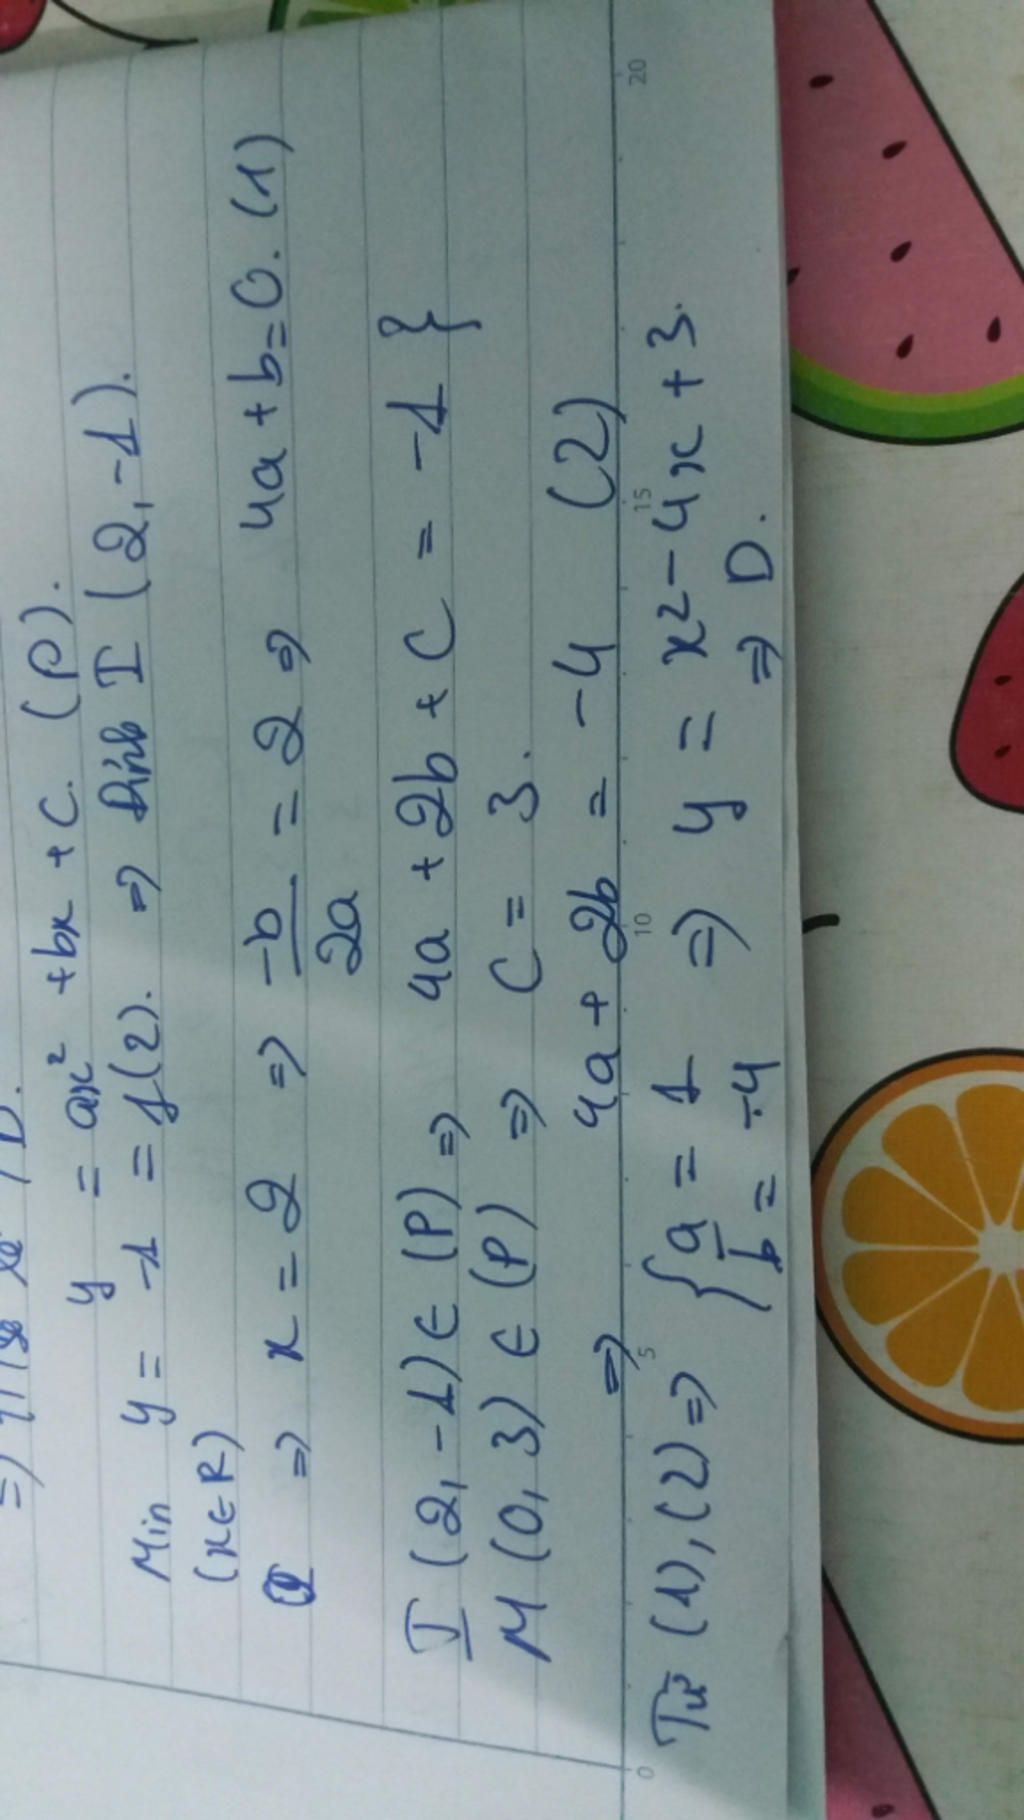 y = ax² + bx + c. (P).
Min y = -1 = f(2). => Đỉnh I (2, -1).
(x∈R)
=> x = 2 => -b/2a = 2 => 4a + b = 0. (1)
I (2, -1) ∈ (P) => 4a + 2b + C = -1 }
M (0, 3) ∈ (P) => C = 3.
=> 4a + 2b = -4 (2)
Từ (1), (2) => { a = 1 => y = x² - 4x + 3.
b = -4 => D.
0 5 10 15 20